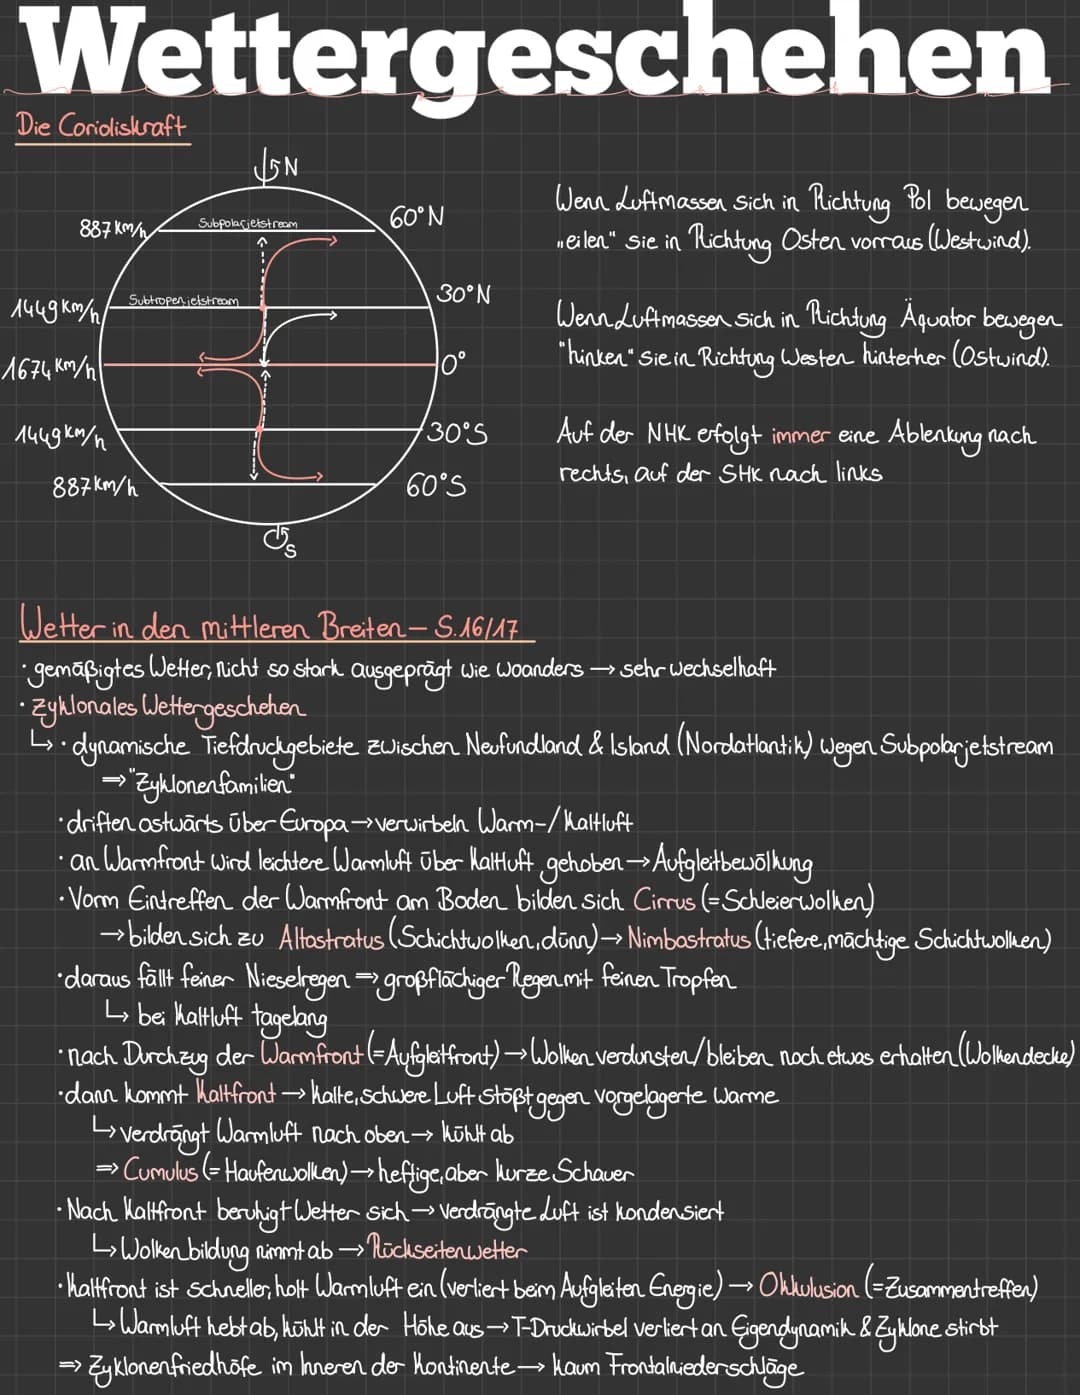 Wettergeschehen
Die Corioliskraft
N
887 km/h
Subpolarjetstream
60°N
1449 km/h
Subtropenjetstream
30°N
1674 km/h
0°
1449 km/h
30°S
887 km/h
60°S
S
Wenn Luftmassen sich in Richtung Pol bewegen
"eilen" sie in Richtung Osten vorraus (Westwind).
Wenn Luftmassen sich in Richtung Äquator bewegen
"hinken" sie in Richtung Westen hinterher (Ostwind).
Auf der NHK erfolgt immer eine Ablenkung nach
rechts, auf der SHK nach links
Wetter in den mittleren Breiten – S.16/17
· gemäßigtes Wetter, nicht so stark ausgeprägt wie woanders → sehr wechselhaft
· Zyklonales Wettergeschehen
↳ · dynamische Tiefdruckgebiete zwischen Neufundland & Island (Nordatlantik) wegen Subpolarjetstream
⇒ "Zyklonenfamilien"
· driften ostwärts über Europa → verwirbeln Warm-/Kaltluft
· an Warmfront wird leichtere Warmluft über Kaltluft gehoben → Aufgleitbewölkung
· Vorm Eintreffen der Warmfront am Boden bilden sich Cirrus (= Schleierwolken)
→ bilden sich zu Altostratus (Schichtwolken, dünn) → Nimbostratus (tiefere, mächtige Schichtwolken)
· daraus fällt feiner Nieselregen ⇒ großflächiger Regen mit feinen Tropfen
↳ bei Kaltluft tagelang
· nach Durchzug der Warmfront (= Aufgleitfront) → Wolken verdunsten/bleiben noch etwas erhalten (Wolkendecke)
· dann kommt Kaltfront → kalte, schwere Luft stößt gegen vorgelagerte Warme
↳ verdrängt Warmluft nach oben → kühlt ab
⇒ Cumulus (= Haufenwolken) → heftige, aber kurze Schauer
· Nach Kaltfront beruhigt Wetter sich → verdrängte Luft ist kondensiert
↳ Wolkenbildung nimmt ab → Rückseitenwetter
· Kaltfront ist schneller, holt Warmluft ein (verliert beim Aufgleiten Energie) → Okkulusion (= Zusammentreffen)
↳ Warmluft hebt ab, kühlt in der Höhe aus → T-Druckwirbel verliert an Eigendynamik & Zyklone stirbt
⇒ Zyklonenfriedhöfe im Inneren der Kontinente → kaum Frontalniederschläge